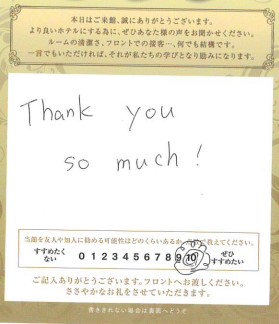 本日はご来館、誠にありがとうございます。
より良いホテルにする為に、ぜひあなた様の声をお聞かせください。
ルームの清潔さ、フロントでの接客…、何でも結構です。
一言でもいただければ、それが私たちの学びとなり励みになります。
Thank you
so much!
当館を友人や知人に勧める可能性はどのくらいあるか、で教えてください。
すすめたくない 0 1 2 3 4 5 6 7 8 9 10 ぜひすすめたい
ご記入ありがとうございます。フロントへお渡しください。
ささやかなお礼をさせていただきます。
書ききれない場合は裏面へどうぞ